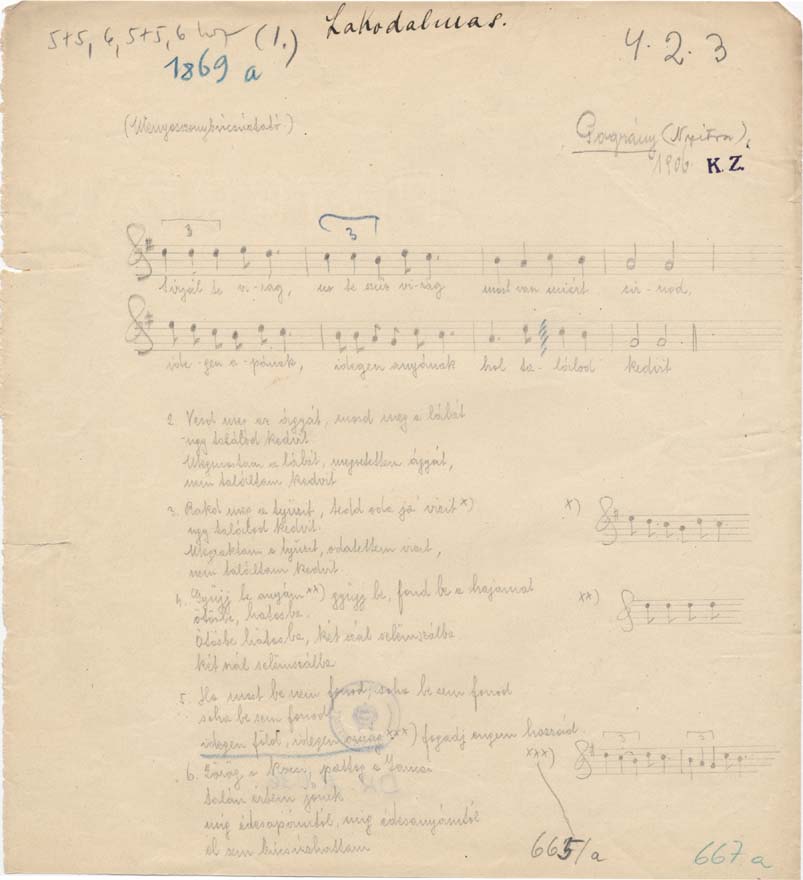 5+5, 6, 5+5, 6 (1.)
Lakodalmas.
4. 2. 3
1869 a
(Menyasszonybúcsúztató)
Pográny (Nyitra),
1906. K. Z.
3 3
Sírjál te virág, te szűz virág most van miért sír-nod,
ide-gen a-pának, idegen anyának hol ta-lálod kedvit
2. Vesd meg az ágyát, mosd meg a lábát
úgy találod kedvit
Megmostam a lábát, megvetettem ágyát,
nem találtam kedvit
3. Rakd meg a tüzit, tedd oda já vizit x)
úgy találod kedvit.
Megraktam a tüzit, odatettem vizit,
nem találtam kedvit.
x)
4. Gyüjj be anyám xx) gyüjj be, fond be a hajamat
ötösbe, hatosba.
Ötösbe hatosba, két szál selëmszálba
két szál selëmszálba
xx)
5. Ha most be nem fonod, soha be sem fonod
soha be sem fonod
idegen föld, idegen ország xxx) fogadj engem hozzád
xxx) 3 3
6. Zörög a kocsi, pattog a
talán értem jönek
míg édesapámtól, míg édesanyámtól
el sem búcsúzhattam
665/a
667 a